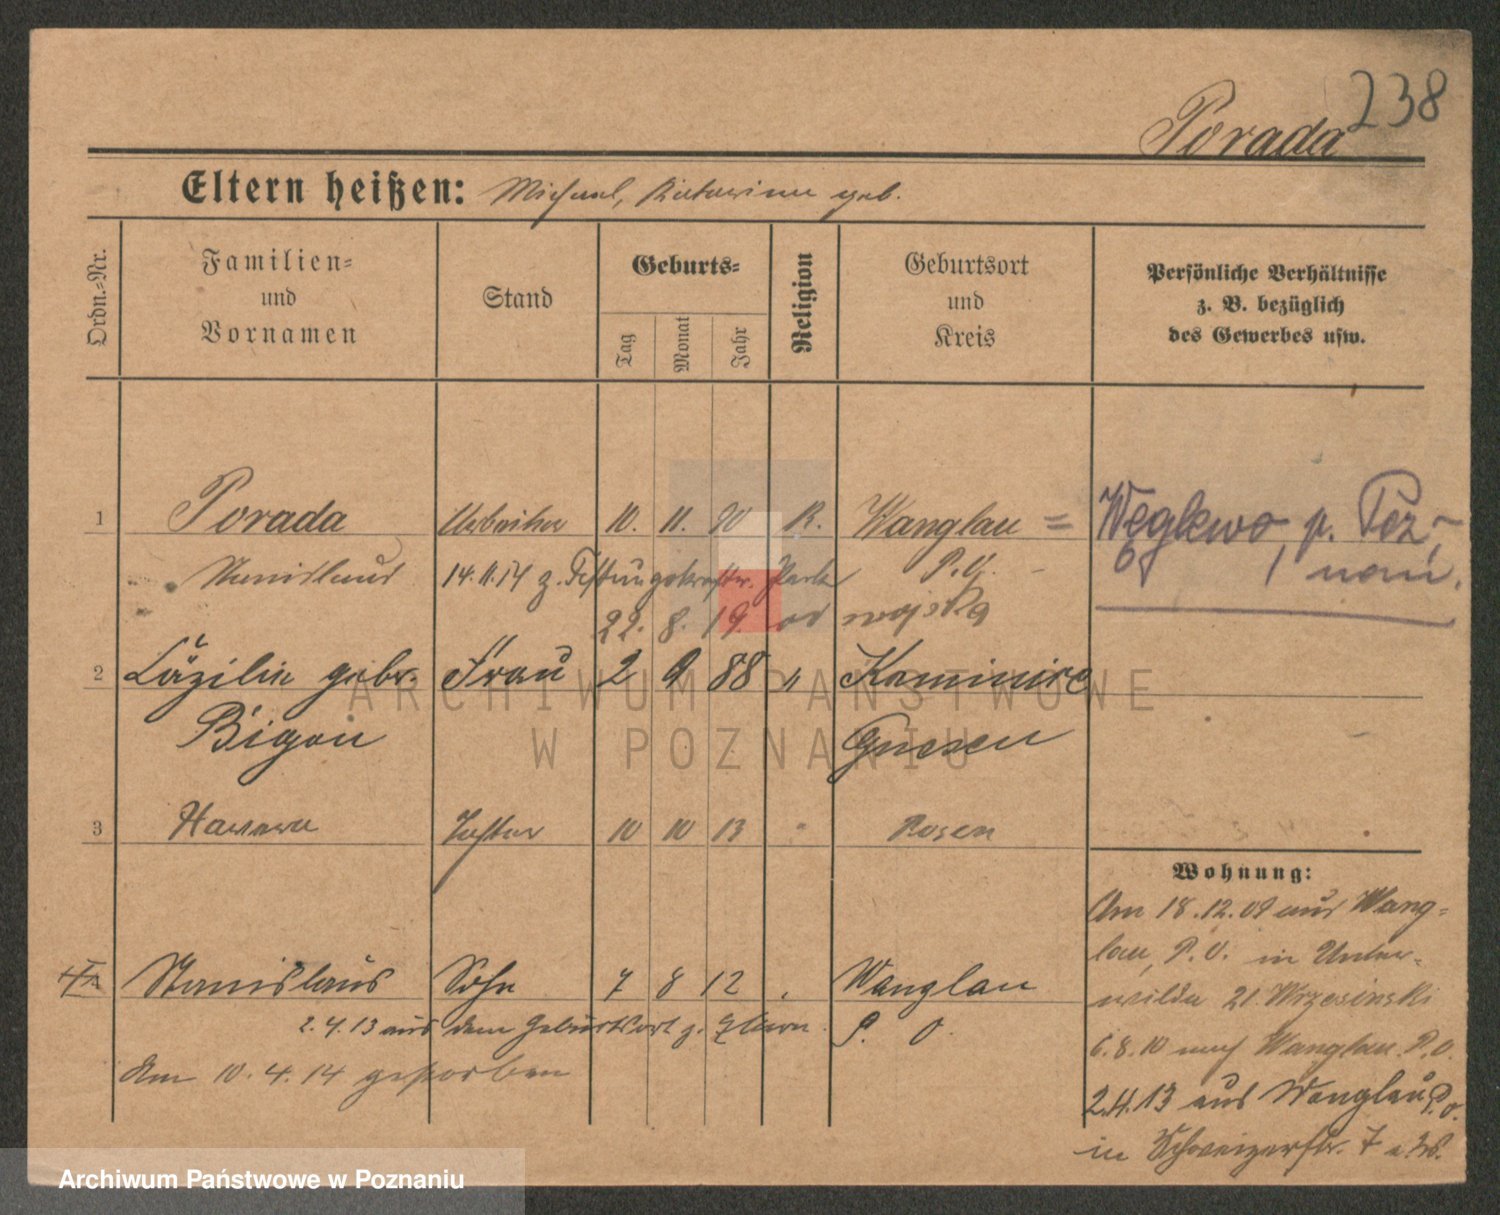 238
Porada
Eltern heißen: Michael, Katarina geb.
Ordn.-Nr.
Familien-
und
Vornamen
Stand
Geburts-
Tag
Monat
Jahr
Religion
Geburtsort
und
Kreis
Persönliche Verhältnisse
z. B. bezüglich
des Gewerbes usw.
1 Porada Arbeiter 10. 11. 90 R. Wanglau = Węglewo, p. Poz-
Stanislaus 14.11.14 z. Festungskraftw. Park P.O. nań.
22. 8. 19. od wojska
2 Cäzilie gebr. Frau 2 9 88 " Kaminiec
Bigon Gnesen
3 Tochter 10 10 13 " Posen
Wohnung:
Am 18.12.09 aus Wang-
lau, P.O. in Unter-
wilda 21 Wrzesinski
6.8.10 nach Wanglau P.O.
2.4.13 aus Wanglau P.O.
in Schweizerstr. 7
4 Stanislaus Sohn 7 8 12 Wanglau
2.4.13 aus dem Geburtsort z. Eltern. P. O.
Am 10.4.14 gestorben
ARCHIWUM PAŃSTWOWE
W POZNANIU
Archiwum Państwowe w Poznaniu